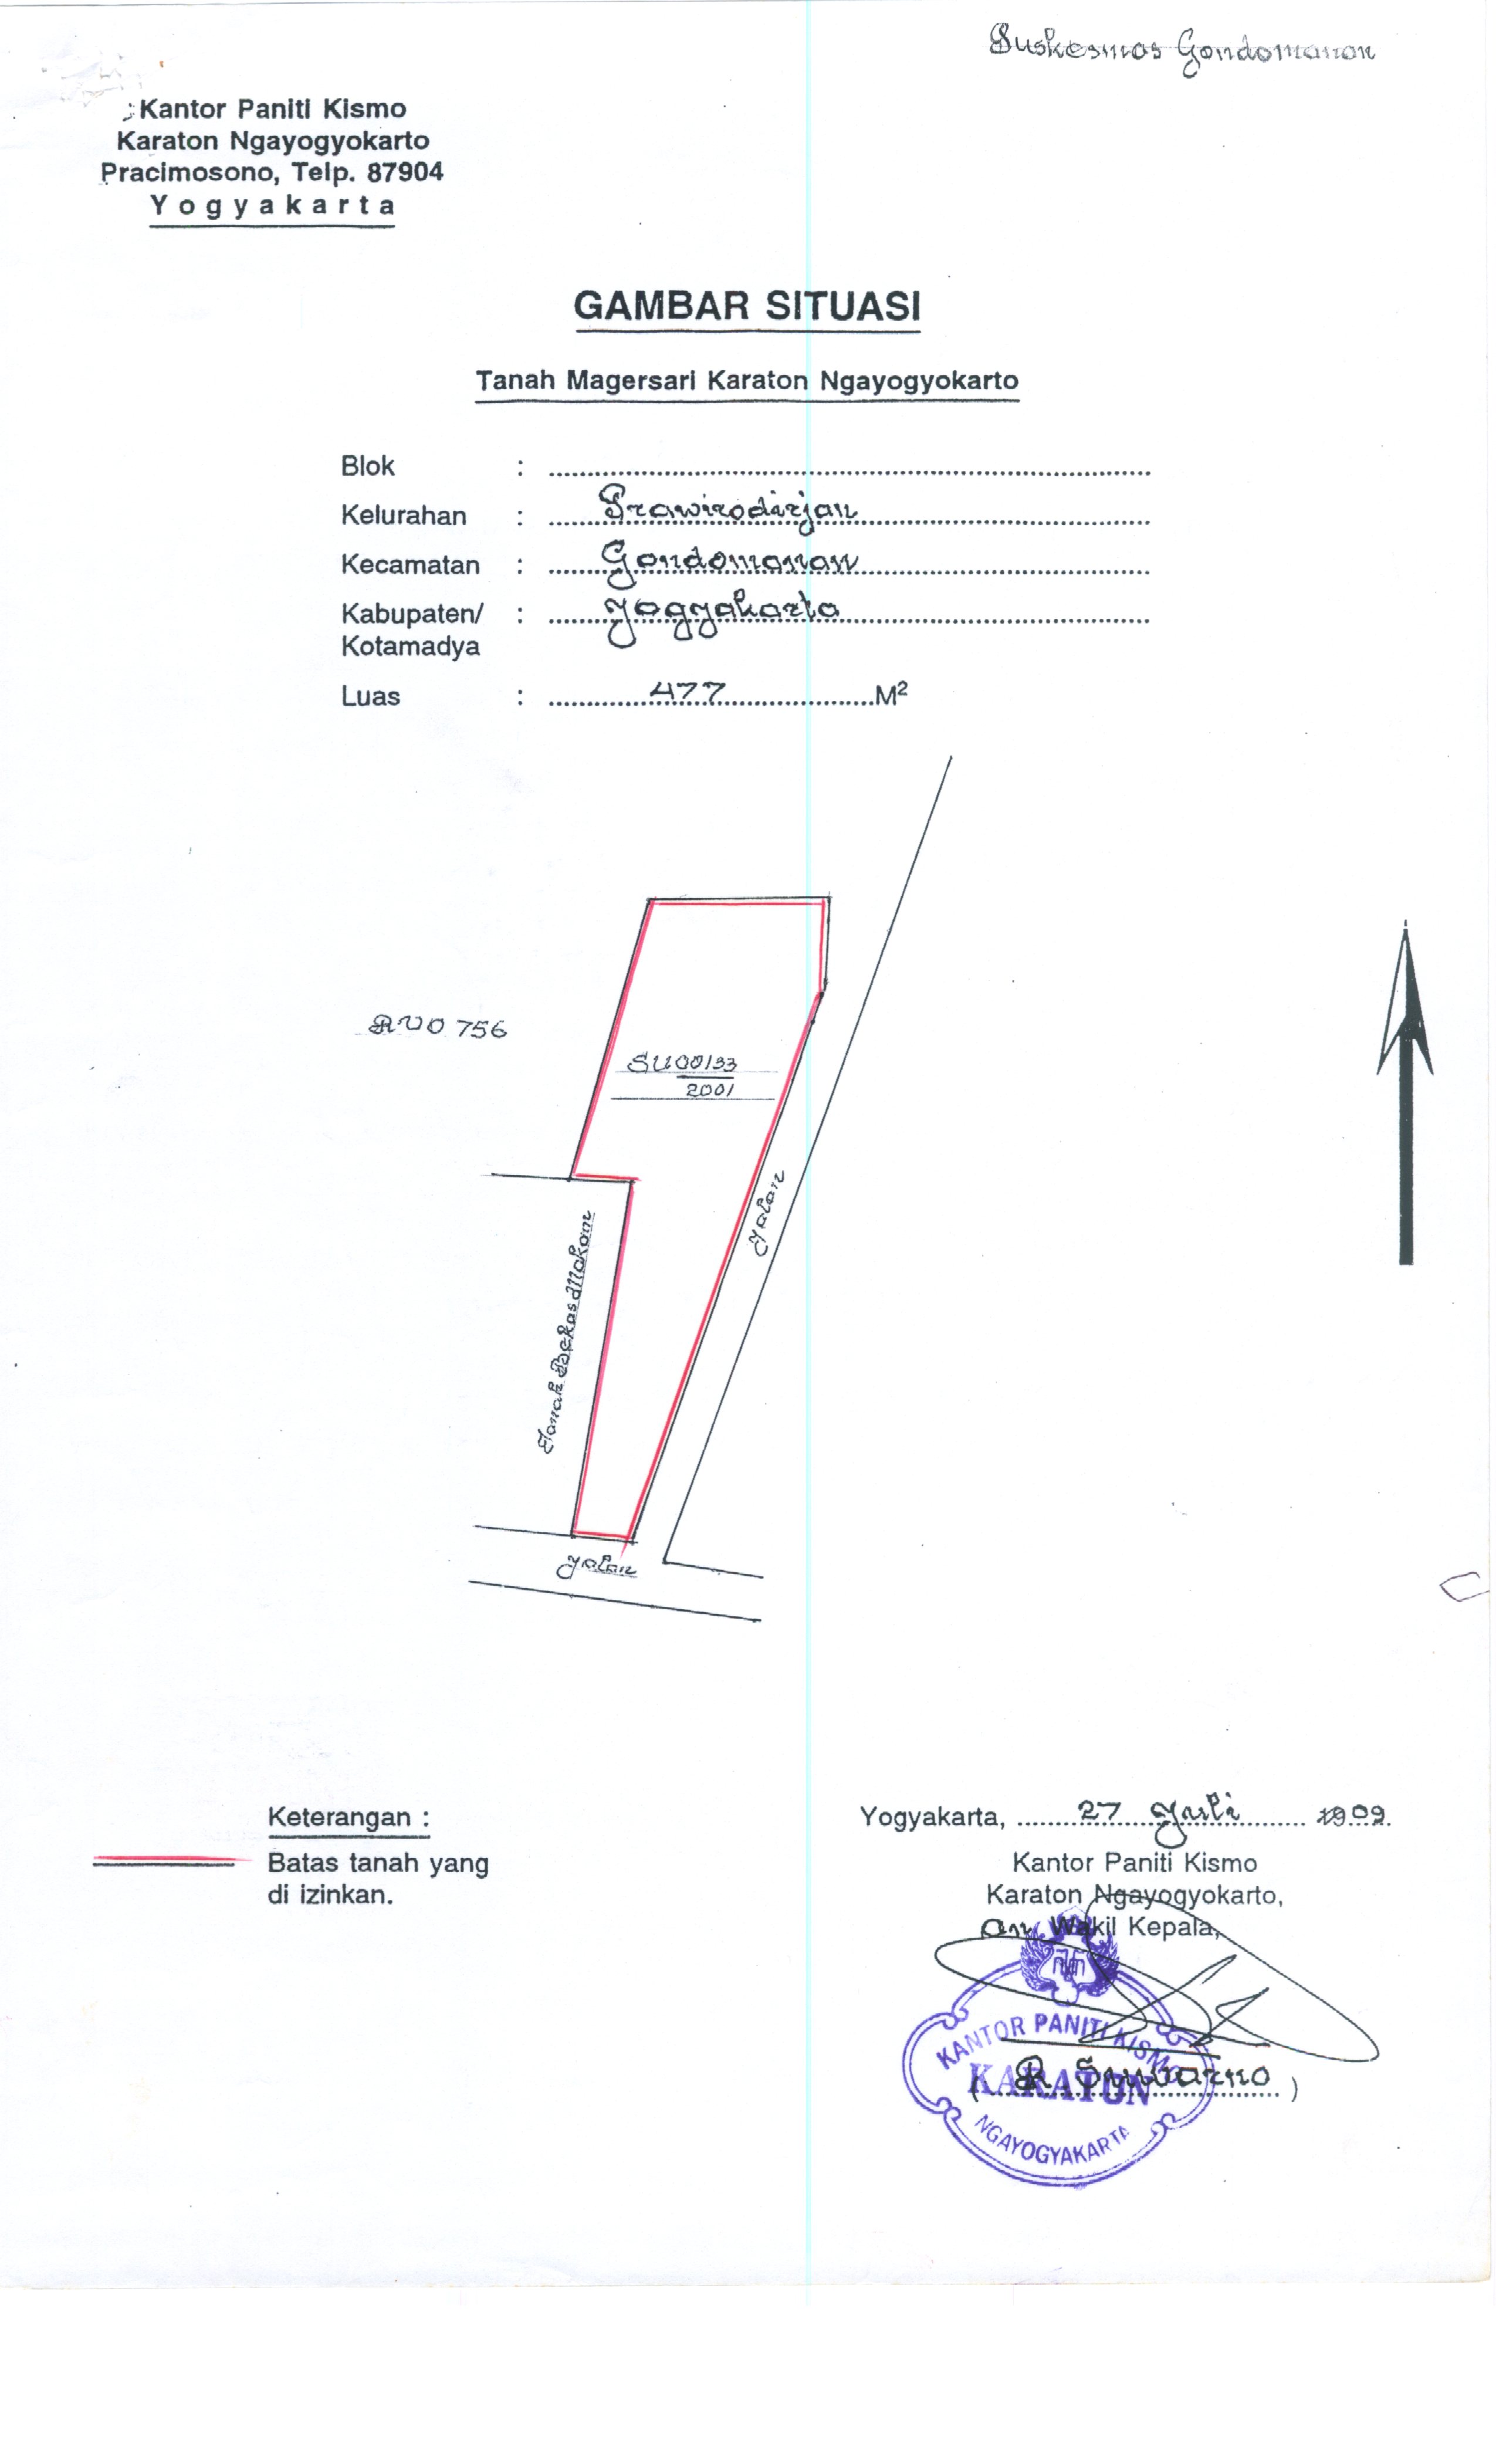 Puskesmas Gondomanan
Kantor Paniti Kismo
Karaton Ngayogyokarto
Pracimosono, Telp. 87904
Yogyakarta
GAMBAR SITUASI
Tanah Magersari Karaton Ngayogyokarto
Blok :
Kelurahan : Prawirodirjan
Kecamatan : Gondomanan
Kabupaten/ : Yogyakarta
Kotamadya
Luas : 477 M²
RVO 756
SU 00133
2001
Jalan
Tanah Bekas Makam
Jalan
Keterangan :
Batas tanah yang
di izinkan.
Yogyakarta, 27 Juli 2009
Kantor Paniti Kismo
Karaton Ngayogyokarto,
an Wakil Kepala,
KANTOR PANITI KISMO
KARATON
NGAYOGYAKARTA
(R Suwarno)